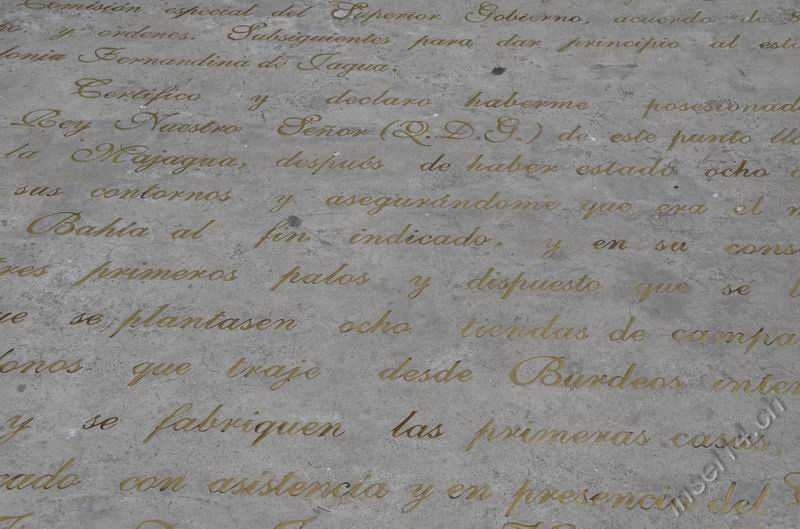 Comisión especial del Superior Gobierno, acuerdo de
y ordenes. Subsiguientes para dar principio al
Fernandina de Jagua.
Certifico y declaro haberme posesionad
Rey Nuestro Señor (Q.D.G.) de este punto
la Majagua, después de haber estado ocho
sus contornos y asegurándome que era el
Bahía al fin indicado, y en su cons
primeros palos y dispuesto que se
se plantasen ocho tiendas de campa
onos que traje desde Burdeos inter
y se fabriquen las primeras casas,
cado con asistencia y en presencia del
insel14.ch